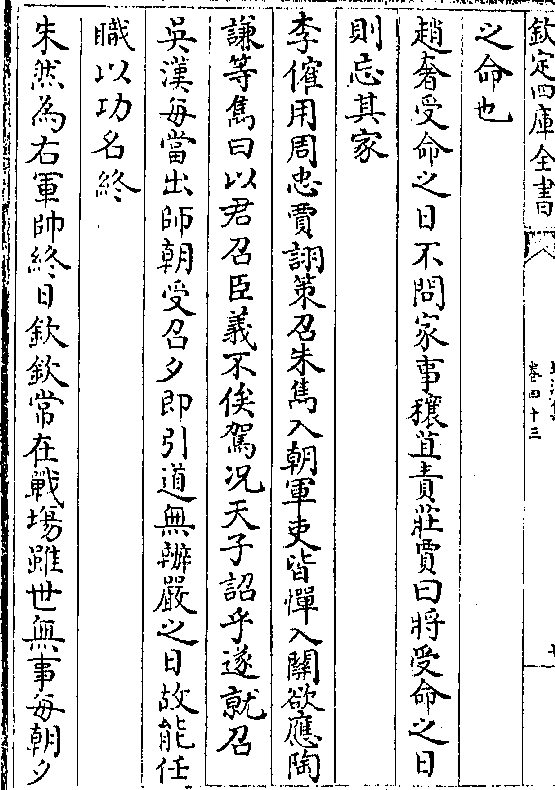 欽定四庫全書
卷四十三
之命也
趙奢受命之日不問家事穰苴責莊賈曰將受命之日
則忘其家
李傕用周忠賈詡策召朱雋入朝軍吏皆憚入關欲應陶
謙等雋曰以君召臣義不俟駕况天子詔乎遂就召
吳漢每當出師朝受召夕即引道無辦嚴之日故能任
職以功名終
朱然為右軍帥終日欽欽常在戰場雖世無事每朝夕